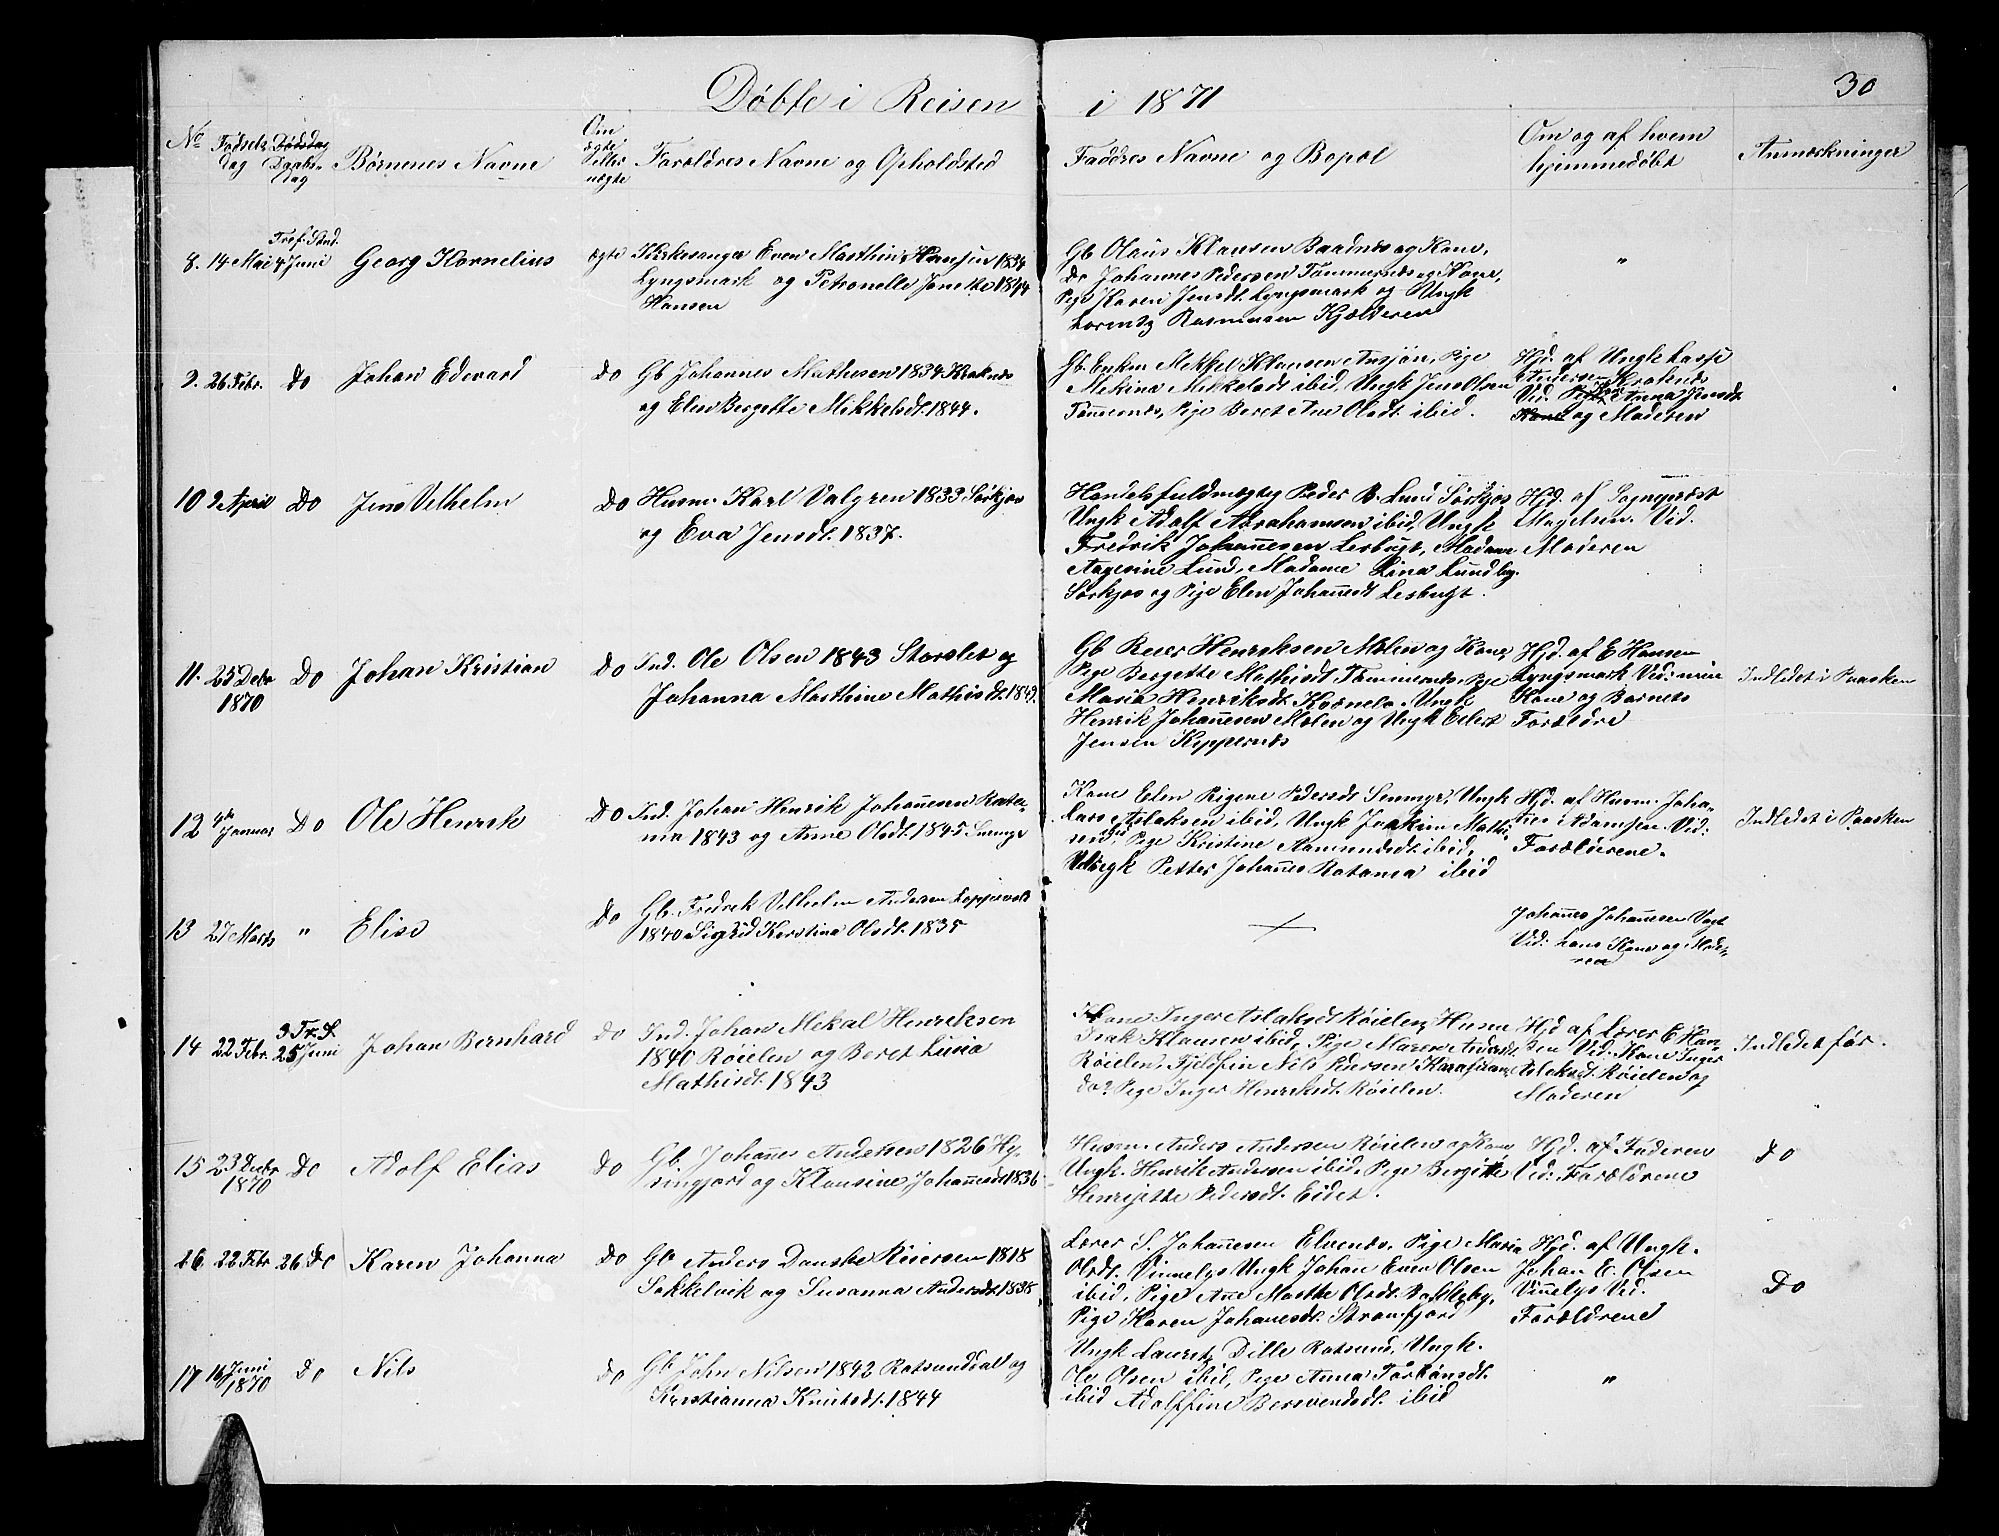 Döbte i Reisen i 1871
30
No
Fødsels dag
Dødsdag Daabs- dag
Børnenes Navne
Om ægte eller uægte
Foræ­ldres Navne og Opholdsted
Faddres Navne og Bopæl
Om og af hvem hjemmedöbt
Anmærkninger
8. 14 Mai Tref. Sønd. 4 Juni Georg Kornelius ægte Kirkesanger Even Marthin Hansen 1834
Lyngsmark og Petronelle Jensine 1844
Hansen
Gb Olaus Klausen Baadnes og Kone,
Do Johannes Pedersen Tömmernes og Kone,
Pige Karen Jensdt. Lyngsmark og Ungk
Lorentz Rasmusen Kjelderen
"
9. 26 Febr. Do Johan Edevard Do Gb Johannes Mathesen 1834 Kraknes
og Elen Bergette Mikkelsdt. 1844.
Gb. Enkem Mekkel Klausen, Pige
Mekina Mikkelsdt ibid, Ungk Jens Olsen
Tömernes, Pige Beret Ane Olsdt. ibid.
Hjd. af Ungk Lasse
Andersen Kraknes
Vid. Pige Anna Jensdt.
Kone og Moderen
10 9 April Do Jens Vilhelm Do Husm. Karl Valgren 1833 Sørkjos
og Eva Jensdt. 1837.
Handelsfuldmægtig Peder B. Lund Sørkjos
Ungk Adolf Abrahamsen ibid, Ungk
Fredrik Johannesen Lesbugt, Madame
Aagesine Lund, Madame Lina Lundby.
Sørkjos og Pige Elen Johannesdt Lesbugt.
Hjd. af Sognepræst
Magelsen. Vid.
Moderen
11. 25 Debr 1870 Do Johan Kristian Do Ind. Ole Olsen 1843 Storslet og
Johanna Marthine Mathisdt. 1849.
Gb Reier Henriksen Molen og Kone,
Pige Bergette Mathisdt Tömmernes, Pige
Maria Henriksdt. Ungk
Henrik Johannesen Molen og Ungk Eilert
Jensen Kippernes
Hjd. af E Hansen
Lyngsmark Vid: min
Kone og Barnets
Forældre
Indledet i Paasken
12 4de Januar Do Ole Henrik Do Ind. Johan Henrik Johannesen Rata-
ma 1843 og Anne Olsdt. 1845. Snemyr
Kone Elen Rigene Pedersdt Snemyr, Ungk
Lars Aslaksen ibid, Ungk Joakim Mathi-
sen ibid, Pige Kristine Aamundsdt. ibid,
Ungk Petter Johannes Ratama ibid
Hjd. af Husm. Joha-
nes Adamsen. Vid:
Forælderene.
Indledet i Paasken
13 27 Marts " Elise Do Gb. Fredrik Vilhelm Andersen Loppevold
1840 Sigrid Kerstina Olsdt. 1835
×
Johannes Johannesen Vogt
Vid: hans Kone og Mode-
ren
14 22 Febr. 3 Tr. S. 25 Juni Johan Bernhard Do Ind. Johan Mekal Henriksen
1840 Röielen og Beret Lusia
Mathisdt. 1843
Kone Inger Aslaksdt Röielen, Husm
Isak Klausen ibid, Pige Maren Andersdt.
Röielen, Fjeldfin Nils Pedersen
do? Pige Inger Henriksdt. Röielen.
Hjd af Lærer E Han-
sen Vid: Kone Inger
Aslaksdt. Röielen og
Moderen
Indledet før.
15 23 Decbr 1870 Do Adolf Elias Do Gb. Johannes Andersen 1826 Hy-
ringjord og Klausine Johannesdt 1836
Husm. Anders Andersen Röielen og Kone
Ungk. Henrik Andersen ibid, Pige Bergitte
Henrijette Pedersdt. Eidet.
Hjd. af Faderen
Vid: Forældrene
Do
16 22 Febr 26 Do Karen Johanna Do Gb Anders Danske Reiersen 1818
Sokkelvik og Susanna Andersdt. 1838
Lærer S. Johannesen Elvenes, Pige Maria
Olsdt. Vinnelys Ungk Johan Even Olsen
ibid, Pige Ane Marthe Olsdt. Bakkeby,
Pige Karen Johannesdt. Straumfjord
Hjd. af Ungk.
Johan E. Olsen
Vinnelys Vid.
Forældrene
Do
17 16 Juni 1870 Do Nils Do Gb John Nilsen 1842 Rotsunddal og
Kristianna Knutsdt. 1844
Ungk Lauretz Dille Rotsund, Ungk.
Ole Olsen ibid, Pige Anna Torbönsdt.
ibid Adolffine Berovendsdt. ibid
"